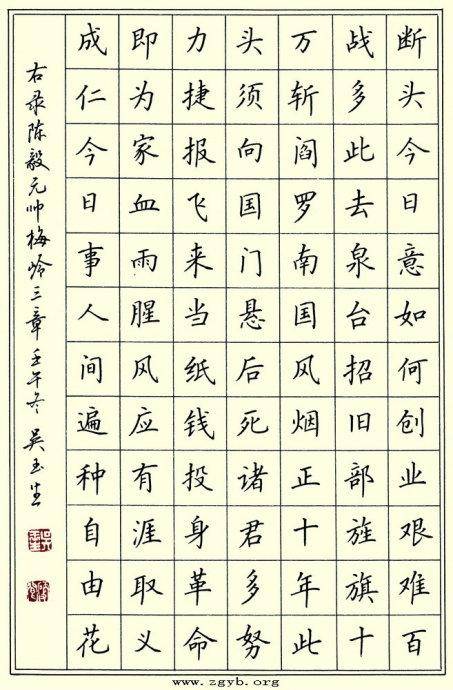 断头今日意如何创业艰难百
战多此去泉台招旧部旌旗十
万斩阎罗南国风烟正十年此
头须向国门悬后死诸君多努
力捷报飞来当纸钱投身革命
即为家血雨腥风应有涯取义
成仁今日事人间遍种自由花
右录陈毅元帅梅岭三章 壬午冬 吴玉生
www.zgyb.org